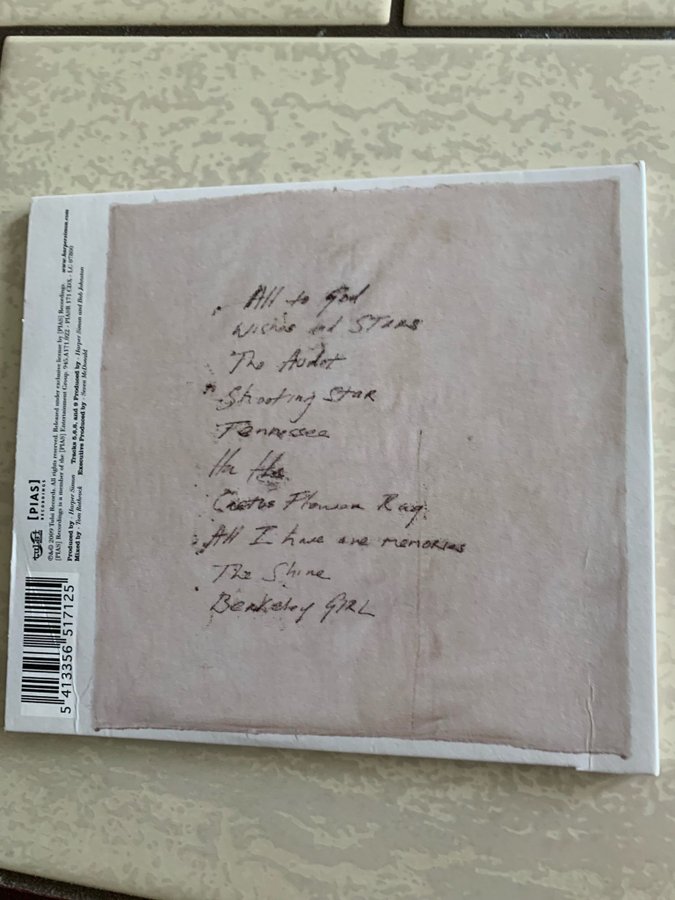 All to God
Wishes and STARS
The Audit
Shooting Star
Tennessee
Ha Ha
Cactus Flower Rag
All I have are memories
The Shine
Berkeley GIRL
[PIAS]
RECORDINGS
℗&© 2009 Tulsi Records. All rights reserved. Released under exclusive license by [PIAS] Recordings.
[PIAS] Recordings is a member of the [PIAS] Entertainment Group. 945.A171.022 - PIASR 171 CDX - LC 07800
www.harpersimon.com
Produced by : Harper Simon Tracks 5,6,8, and 9 Produced by : Harper Simon and Bob Johnston
Mixed by : Tom Rothrock Executive Produced by : Steven McDonald
5 413356 517125